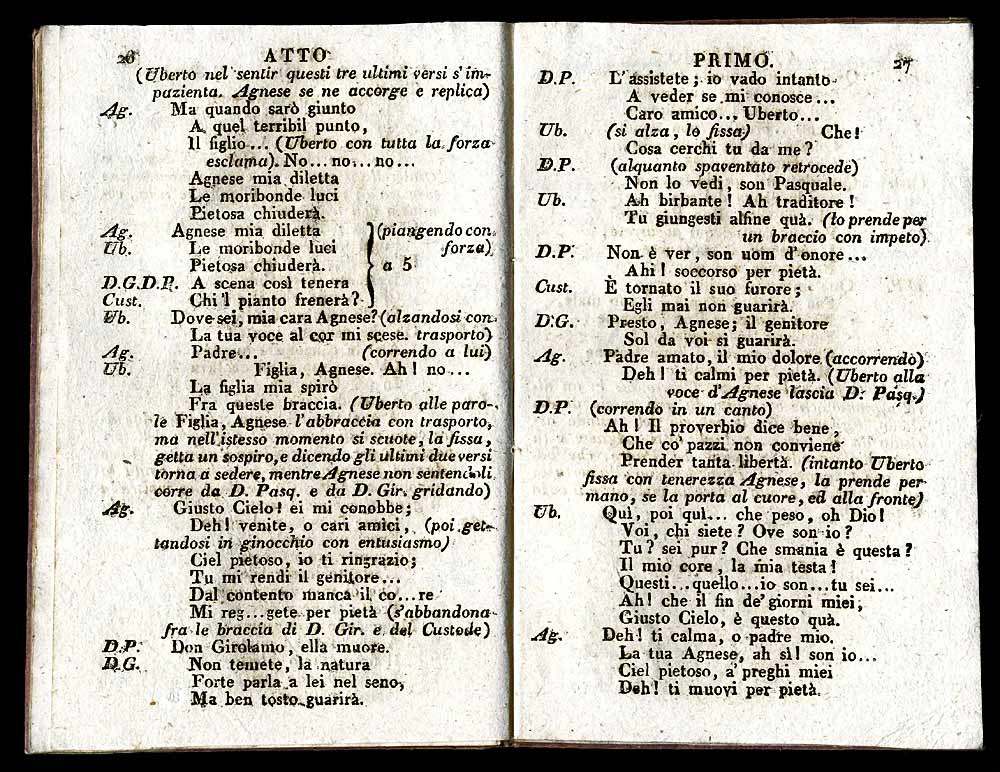 26 ATTO
(Uberto nel sentir questi tre ultimi versi s'im-
pazienta. Agnese se ne accorge e replica)
Ag. Ma quando sarò giunto
A quel terribil punto,
Il figlio... (Uberto con tutta la forza
esclama). No...no...no...
Agnese mia diletta
Le moribonde luci
Pietosa chiuderà.
Ag. Agnese mia diletta (piangendo con
Ub. Le moribonde luci forza)
Pietosa chiuderà. a 5
D.G.D.P. A scena così tenera
Cust. Chi'l pianto frenerà?
Ub. Dove sei, mia cara Agnese? (alzandosi con
La tua voce al cor mi scese. trasporto)
Ag. Padre... (correndo a lui)
Ub. Figlia, Agnese. Ah! no...
La figlia mia spirò
Fra queste braccia. (Uberto alle paro-
le Figlia, Agnese l'abbraccia con trasporto,
ma nell'istesso momento si scuote, la fissa,
getta un sospiro, e dicendo gli ultimi due versi
torna a sedere, mentre Agnese non sentendoli
corre da D. Pasq. e da D. Gir. gridando)
Ag. Giusto Cielo! ei mi conobbe;
Deh! venite, o cari amici, (poi get-
tandosi in ginocchio con entusiasmo)
Ciel pietoso, io ti ringrazio;
Tu mi rendi il genitore...
Dal contento manca il co...re
Mi reg...gete per pietà (s'abbandona
fra le braccia di D. Gir. e del Custode)
D.P. Don Girolamo, ella muore.
D.G. Non temete, la natura
Forte parla a lei nel seno,
Ma ben tosto guarirà.
PRIMO. 27
D.P. L'assistete; io vado intanto
A veder se mi conosce...
Caro amico... Uberto...
Ub. (si alza, lo fissa) Che!
Cosa cerchi tu da me?
D.P. (alquanto spaventato retrocede)
Non lo vedi, son Pasquale.
Ub. Ah birbante! Ah traditore!
Tu giungesti alfine quà. (lo prende per
un braccio con impeto)
D.P. Non è ver, son uom d'onore...
Ahi! soccorso per pietà.
Cust. È tornato il suo furore;
Egli mai non guarirà.
D.G. Presto, Agnese; il genitore
Sol da voi si guarirà.
Ag. Padre amato, il mio dolore (accorrendo)
Deh! ti calmi per pietà. (Uberto alla
voce d'Agnese lascia D. Pasq.)
D.P. (correndo in un canto)
Ah! Il proverbio dice bene,
Che co' pazzi non conviene
Prender tanta libertà. (intanto Uberto
fissa con tenerezza Agnese, la prende per
mano, se la porta al cuore, ed alla fronte)
Ub. Quì, poi quì... che peso, oh Dio!
Voi, chi siete? Ove son io?
Tu? sei pur? Che smania è questa?
Il mio core, la mia testa!
Questi...quello...io son...tu sei...
Ah! che il fin de' giorni miei,
Giusto Cielo, è questo quà.
Ag. Deh! ti calma, o padre mio.
La tua Agnese, ah sì! son io...
Ciel pietoso, a' preghi miei
Deh! ti muovi per pietà.